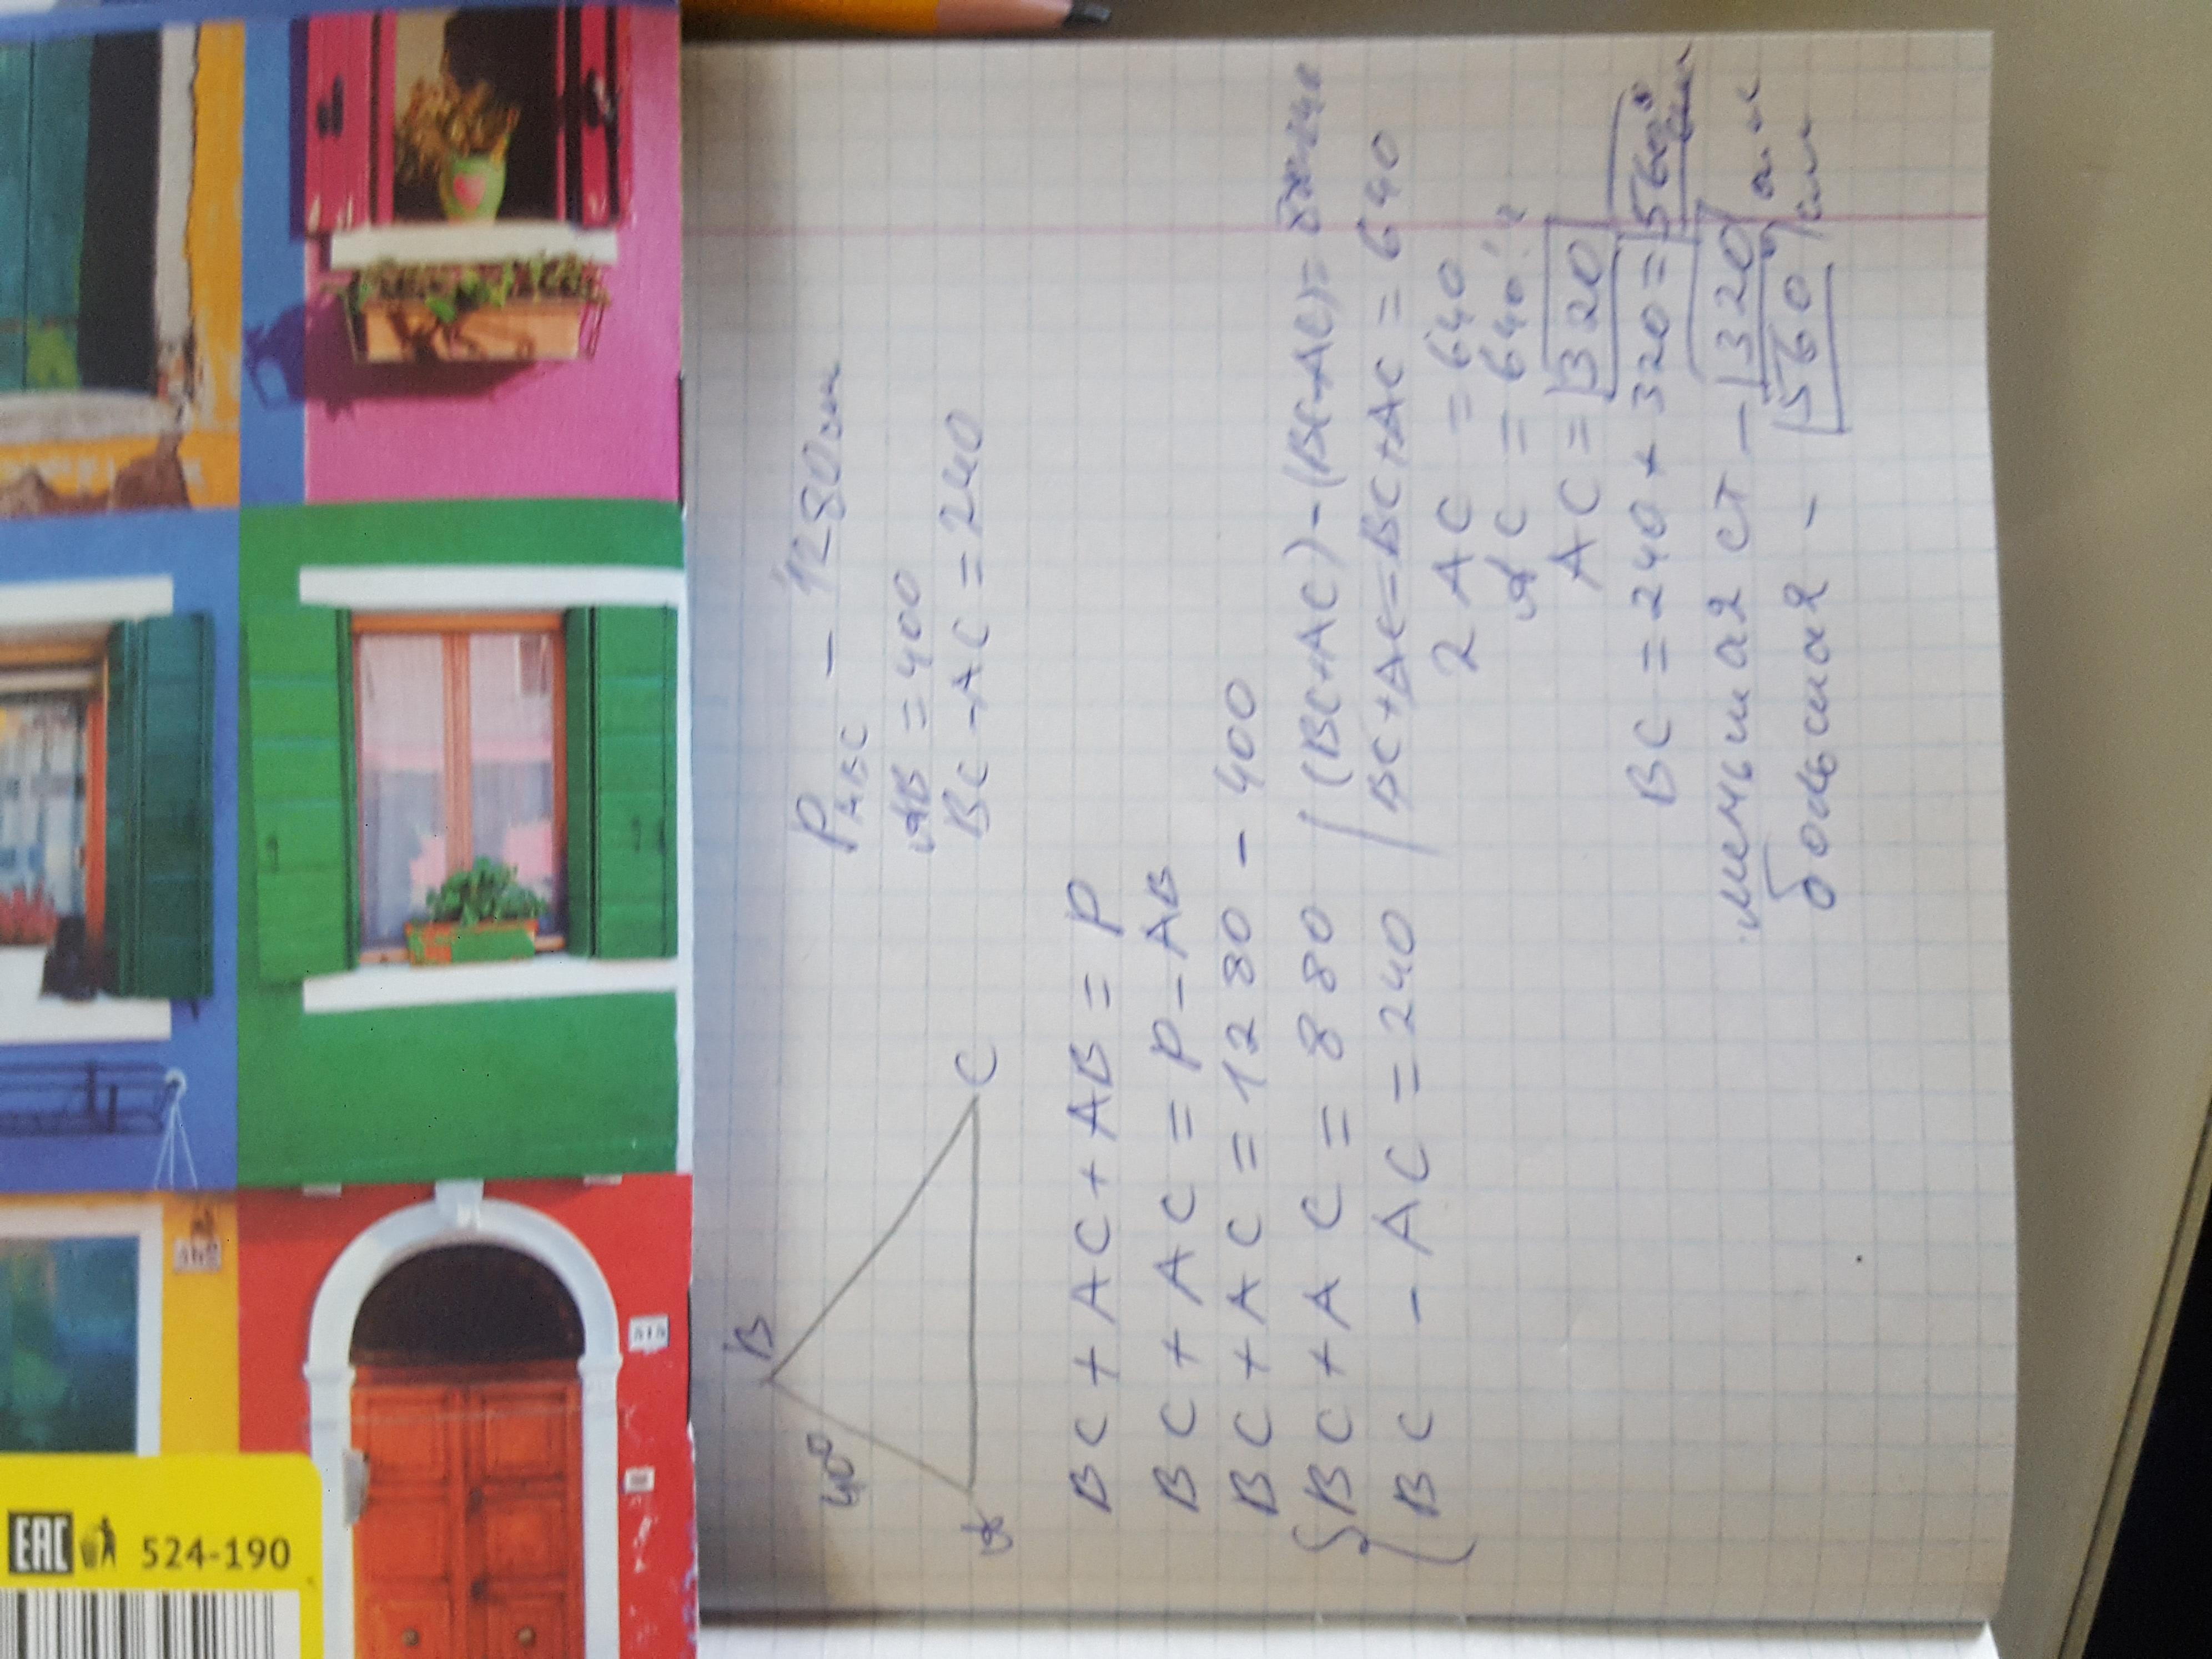 B
400
A
C
P ABC - 1280 см
AB = 400
BC - AC = 240
BC + AC + AB = P
BC + AC = P - AB
BC + AC = 1280 - 400
BC + AC = 880
BC - AC = 240
(BC+AC)-(BC-AC)=
BC+AC-BC+AC = 640
2AC = 640
AC = 640:2
AC = 320
BC = 240 + 320 = 560 см
меньшая ст - 320
большая - 560 см
EAC
524-190